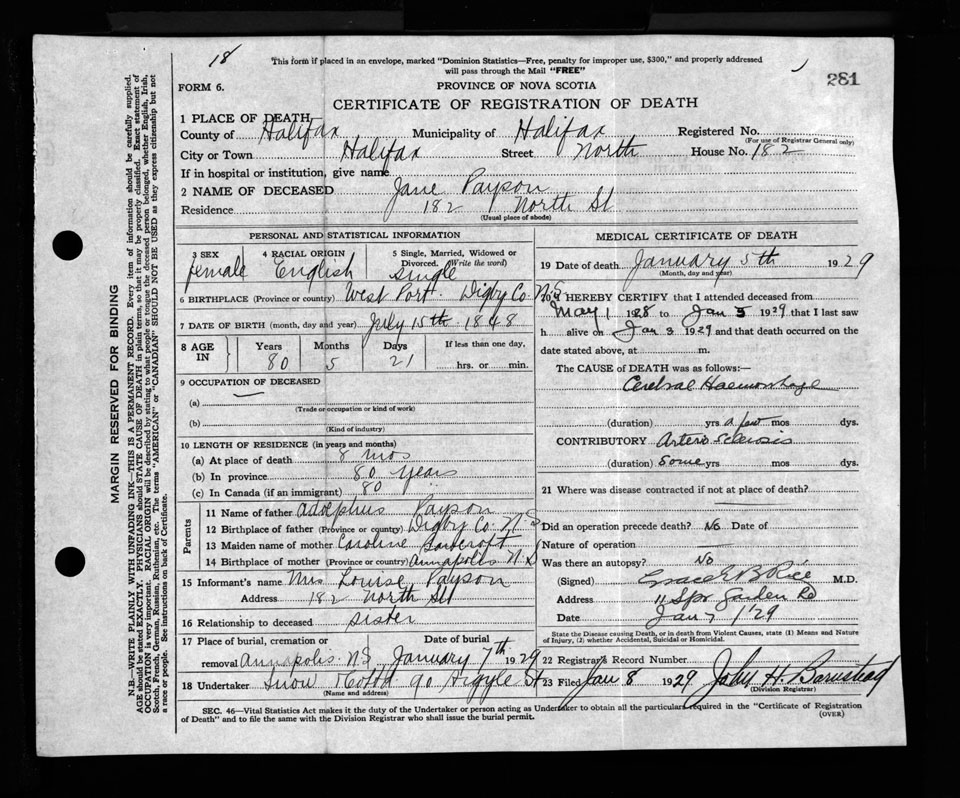 18
This form if placed in an envelope, marked "Dominion Statistics—Free, penalty for improper use, $300," and properly addressed
will pass through the Mail "FREE"
281
FORM 6.
PROVINCE OF NOVA SCOTIA
CERTIFICATE OF REGISTRATION OF DEATH
1 PLACE OF DEATH
County of Halifax Municipality of Halifax Registered No.
(For use of Registrar General only)
City or Town Halifax Street North House No. 182
If in hospital or institution, give name
2 NAME OF DECEASED Jane Payson
Residence 182 North St
(Usual place of abode)
PERSONAL AND STATISTICAL INFORMATION
3 SEX female
4 RACIAL ORIGIN English
5 Single, Married, Widowed or
Divorced. (Write the word)
single
6 BIRTHPLACE (Province or country) West Port. Digby Co. N.S
7 DATE OF BIRTH (month, day and year) July 15th 1848
8 AGE
IN
Years Months Days If less than one day,
80 5 21 hrs. or min.
9 OCCUPATION OF DECEASED
(a) —
(Trade or occupation or kind of work)
(b)
(Kind of industry)
10 LENGTH OF RESIDENCE (in years and months)
(a) At place of death 8 mos
(b) In province 80 years
(c) In Canada (if an immigrant) 80 "
Parents
11 Name of father Adolphus Payson
12 Birthplace of father (Province or country) Digby Co. N.S
13 Maiden name of mother Caroline
14 Birthplace of mother (Province or country) Annapolis N.S
15 Informant's name Mrs Louise Payson
Address 182 North St
16 Relationship to deceased sister
17 Place of burial, cremation or Date of burial
removal Annapolis NS January 7th 1929
18 Undertaker Snow 90 Argyle St
(Name and address)
MEDICAL CERTIFICATE OF DEATH
19 Date of death January 5th 1929
(Month, day and year)
20 I HEREBY CERTIFY that I attended deceased from
May 1 1928 to Jan 5 1929 that I last saw
h alive on Jan 3 1929 and that death occurred on the
date stated above, at m.
The CAUSE of DEATH was as follows:—
Cerebral Haemorrhage
(duration) yrs a few mos dys.
CONTRIBUTORY Arterio Sclerosis
(duration) Some yrs mos dys.
21 Where was disease contracted if not at place of death?
Did an operation precede death? No Date of
Nature of operation —
Was there an autopsy? No
(Signed) Grace E B Rice M.D.
Address 11 Spr Garden Rd
Date Jan 7 1/29
State the Disease causing Death, or in death from Violent Causes, state (1) Means and Nature
of Injury, (2) whether Accidental, Suicidal or Homicidal.
22 Registrar's Record Number
23 Filed Jan 8 1929 John H. Barnstead
(Division Registrar)
SEC. 46—Vital Statistics Act makes it the duty of the Undertaker or person acting as Undertaker to obtain all the particulars required in the "Certificate of Registration
of Death" and to file the same with the Division Registrar who shall issue the burial permit.
(OVER)
MARGIN RESERVED FOR BINDING
N.B.—WRITE PLAINLY WITH UNFADING INK—THIS IS A PERMANENT RECORD. Every item of information should be carefully supplied.
AGE should be stated EXACTLY. PHYSICIANS should STATE CAUSE OF DEATH in plain terms, so that it may be properly classified. Exact statement of
OCCUPATION is very important. RACIAL ORIGIN will be described by stating to what people or tongue the deceased person belonged, whether English, Irish,
Scotch, French, German, Russian, Ruthenian, etc. The terms "AMERICAN" or "CANADIAN" SHOULD NOT BE USED as they express citizenship but not
a race or people. See instructions on back of Certificate.